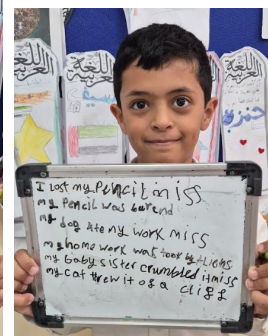 اللغة العربية
اللغة العربية
اللغة العربية
I Lost my Pencil miss
my Pencil was burend
my dog Ate my work miss
my home work was took by Aliens
my baby sister crumbled it miss
my cat threw it of a cliff